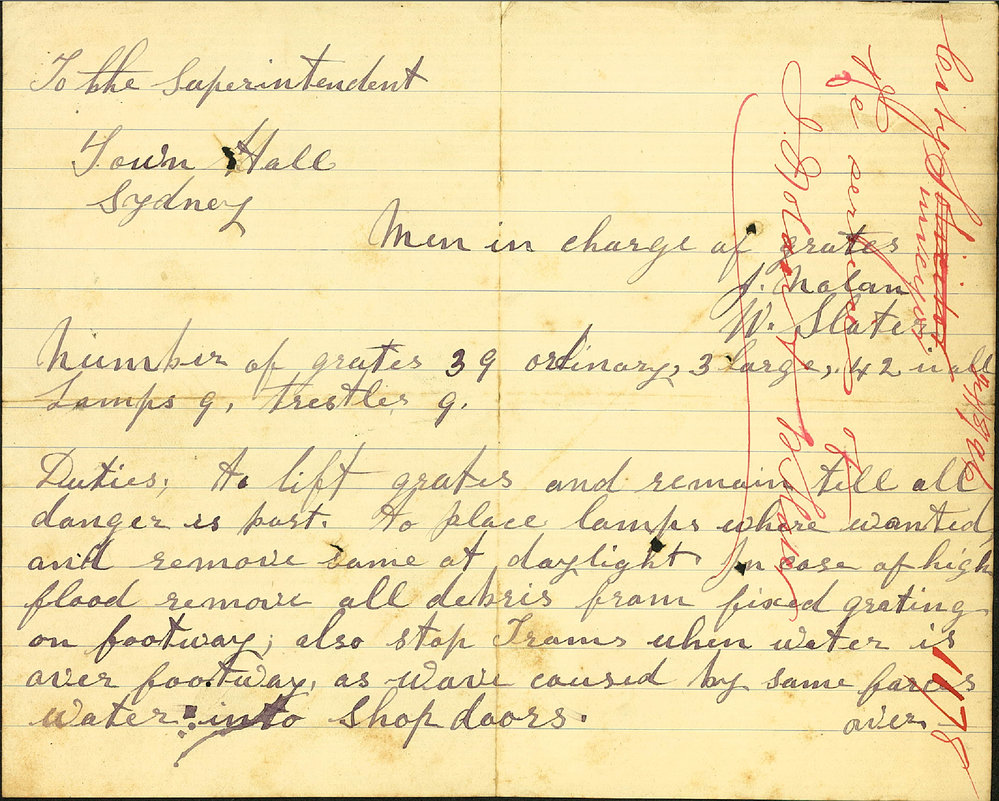 To the Superintendent
Town Hall
Sydney
Men in charge of grates
J. Nolan
W. Slater.
Number of grates 39 ordinary, 3 large, 42 in all
Lamps 9, trestles 9.
Duties; to lift grates and remain till all
danger is past. to place lamps where wanted,
and remove same at daylight In case of high
flood remove all debris from fixed grating
on footway, also stop Trams when water is
over footway, as wave caused by same forces
water into shop doors.
over
City Surveyor
1178